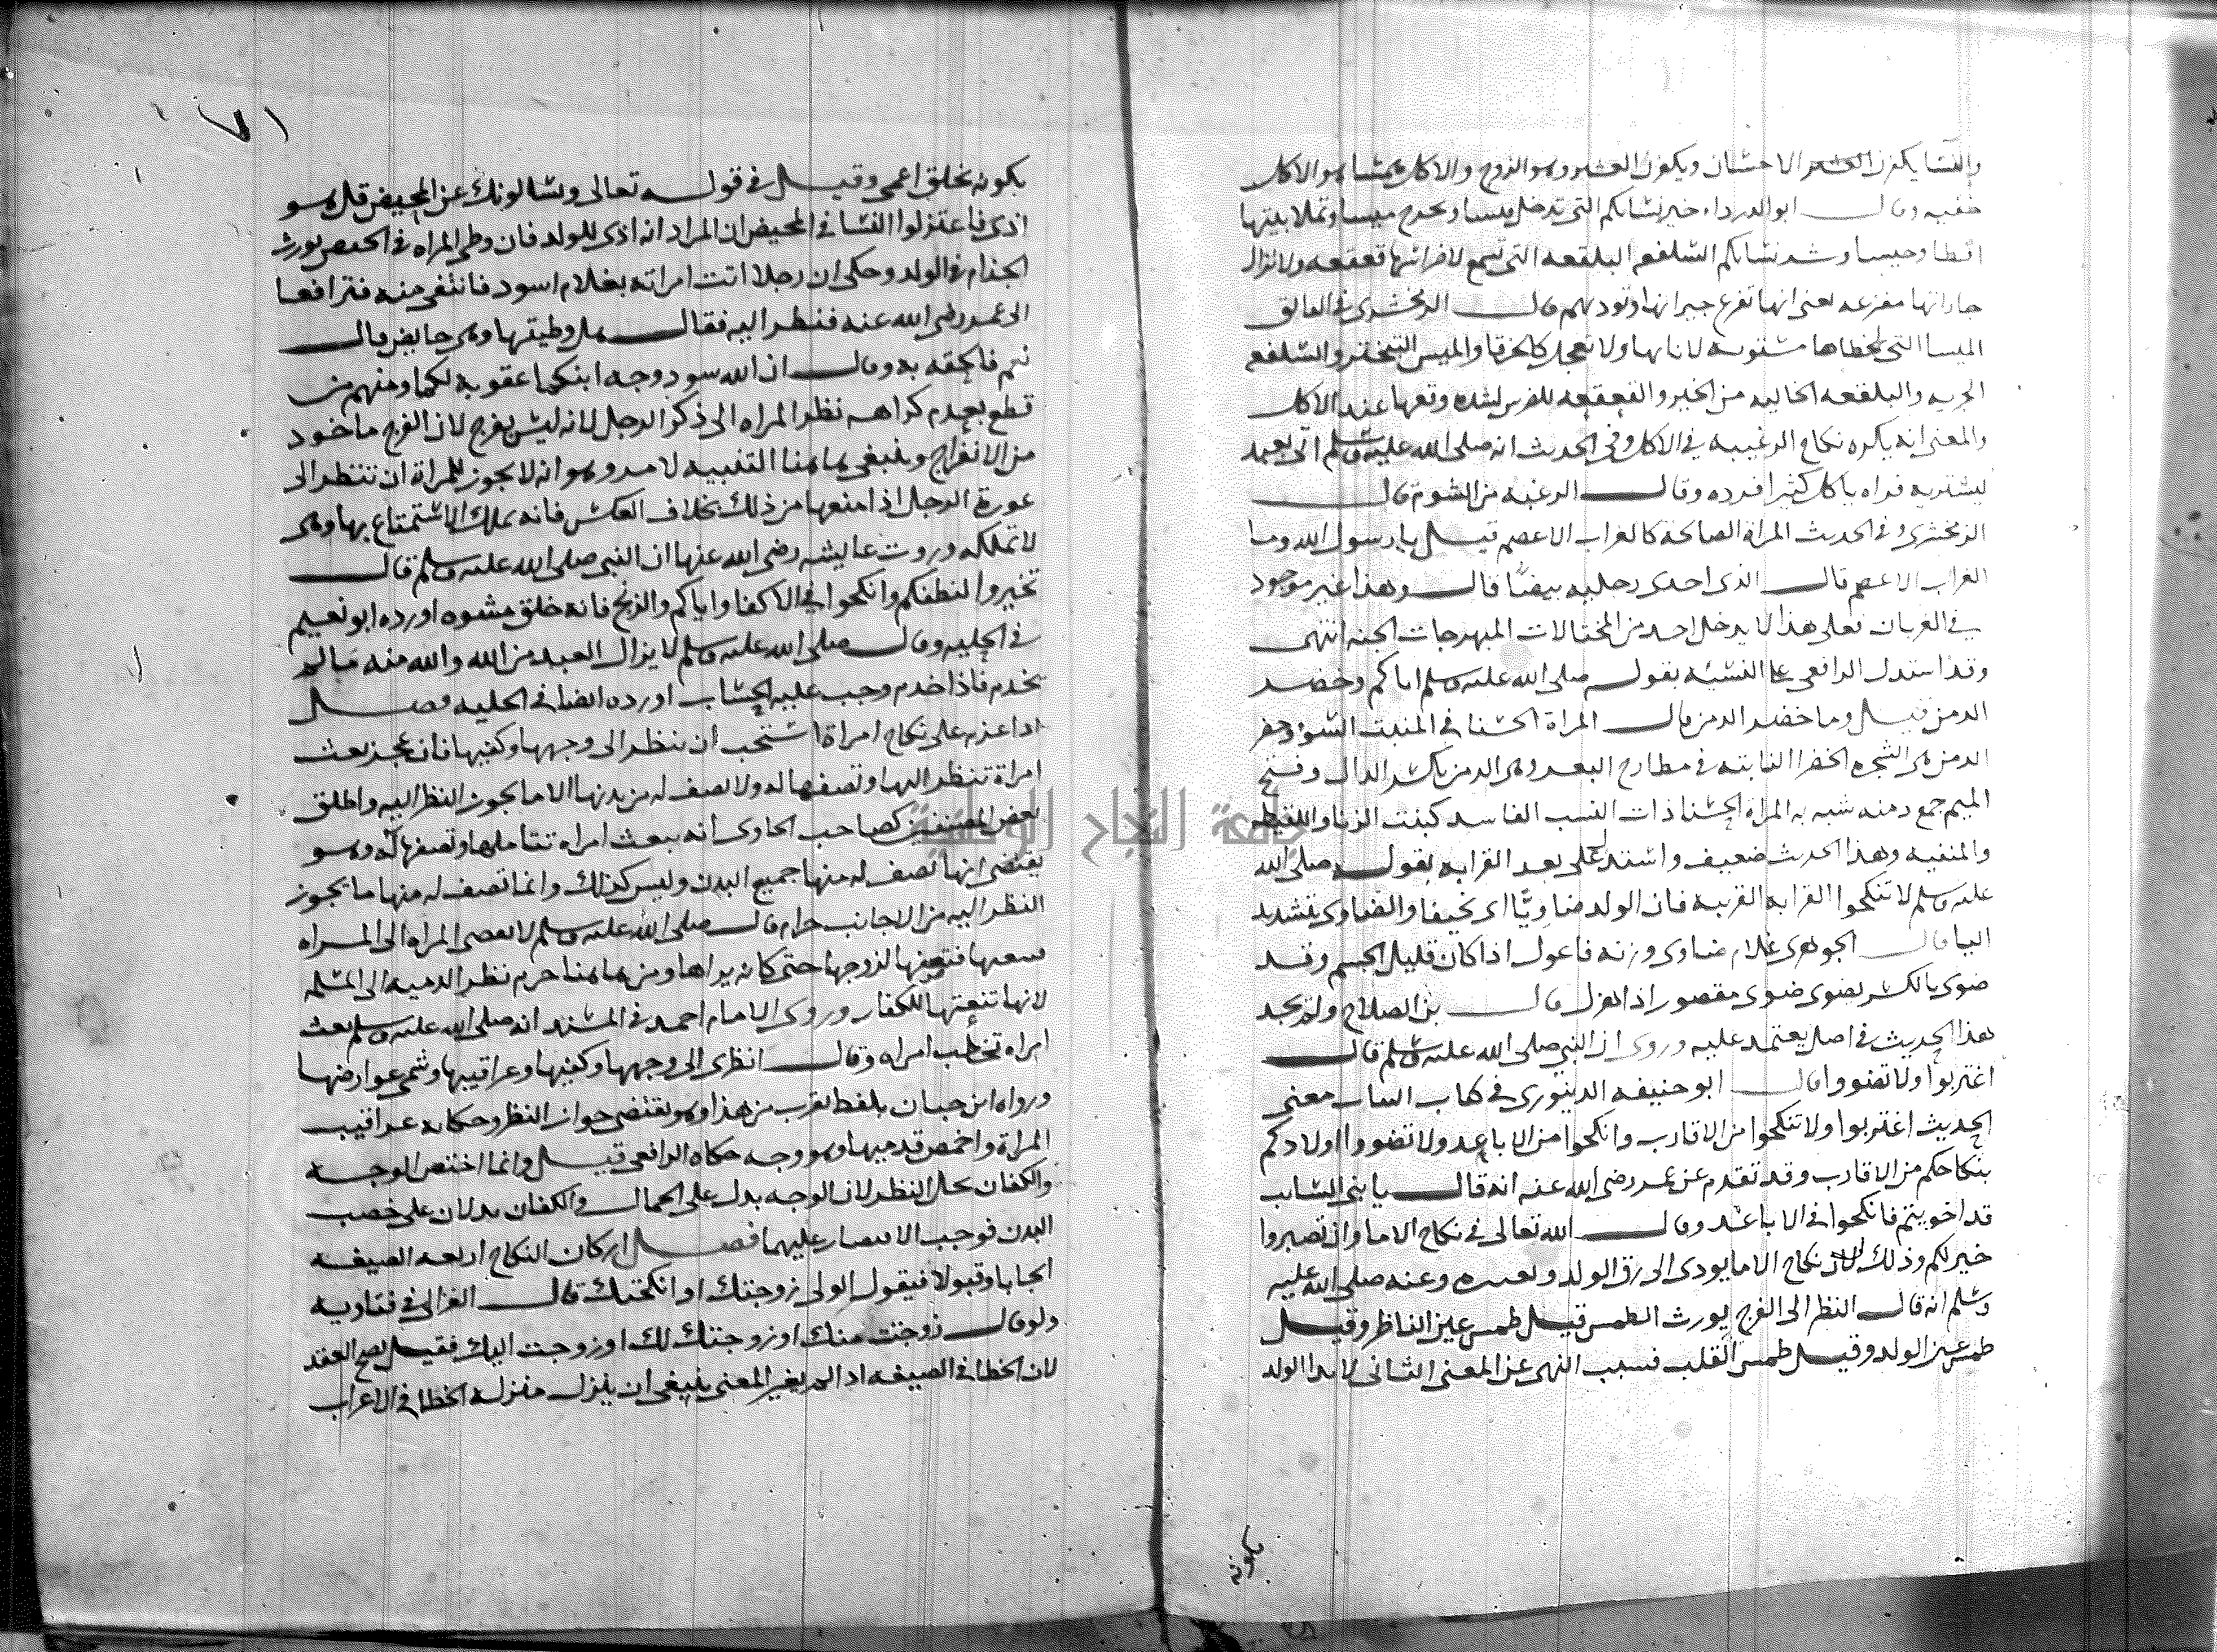 والنسا يكفرن العشير الاحسان ويكفرن العشير وهو الزوج والاكل ممشا هو الاكل
خفيه وقال ابو الدرداء خير نسايكم التي تدخل ميسا وتخرج ميسا وتملا بيتها
اقطا وحيسا وشر نسايكم السلفعه البلقعه التي تسمع لاضراسها قعقعه ولا تزال
جاراتها مفزعه يعني انها تفزع جيرانها وتوديهم قال الزمخشري في الفايق
الميسا التي خطاها مستويه لاناتها ولا تعجل كالخرقا والميس التبختر والسلفع
الجريه والبلقعه الخاليه من الخير والقعقعه للضرس لشده وقعها عند الاكل
والمعنى انه يكره نكاح الرغيبه في الاكل وفي الحديث انه صلى الله عليه وسلم اتى بعبد
ليشتريه فراه ياكل كثيرا فرده وقال الرغبه من الشوم قال
الزمخشري وفي الحديث المراة الصالحة كالغراب الاعصم قيل يا رسول الله وما
الغراب الاعصم قال الذي احدى رجليه بيضا قال وهذا غير موجود
في الغربان فعلى هذا لا يدخل احد من المختالات المتبرجات الجنه انتهى
وقد استدل الرافعي على النسيبه بقوله صلى الله عليه وسلم اياكم وخضر
الدمن قيل وما خضر الدمن قال المراة الحسنا في المنبت السوء وخضر
الدمن هي الشجره الخضرا النابته في مطارح البعر وهي الدمن بكسر الدال وفتح
الميم جمع دمنه شبه به المراة الحسنا ذات النسب الفاسد كبنت الزنا واللقيطه
والمنفيه وهذا الحديث ضعيف واستدل على بعد القرابه بقوله صلى الله
عليه وسلم لا تنكحوا القرابه القريبه فان الولد ضاويًّا اي نحيفا والضاوي بتشديد
اليا قال الجوهري غلام ضاوي وزنه فاعول اذا كان قليل الجسم وقد
ضوي بالكسر يضوى ضوى مقصور اذا هزل قال بن الصلاح ولم نجد
هذا الحديث في اصل يعتمد عليه وروى ان النبي صلى الله عليه وسلم قال
اغتربوا ولا تضووا قال ابو حنيفه الدينوري في كتاب النبات معنى
الحديث اغتربوا ولا تنكحوا من الاقارب وانكحوا من الاباعد ولا تضووا اولادكم
بنكاحكم من الاقارب وقد تقدم عن عمر رضي الله عنه انه قال يا بني السايب
قد اضويتم فانكحوا في الاباعد وقال الله تعالى في نكاح الاما وان تصبروا
خير لكم وذلك لان نكاح الاما يودي الى رق الولد وتعييره وعنه صلى الله عليه
وسلم انه قال النظر الى الفرج يورث الطمس قيل طمس عين الناظر وقيل
طمس عين الولد وقيل طمس القلب فسبب النهي عن المعنى الثاني لابدا الولد
بكونه
١٧١
بكونه يخلق اعمى وقيل في قوله تعالى ويسالونك عن المحيض قل هو
اذى فاعتزلوا النسا في المحيض ان المراد انه اذى للولد فان وطي المراه في الحيض يورث
الجذام في الولد وحكي ان رجلا اتت امراته بغلام اسود فانتفى منه فترافعا
الى عمر رضي الله عنه فنظر اليه فقال هل وطيتها وهي حايض قال
نعم فالحقه به وقال ان الله سود وجه ابنكما عقوبه لكما ومنهم من
قطع بعدم كراهه نظر المراه الى ذكر الرجل لانه ليس بفرج لان الفرج ماخود
من الانفراج وينبغي هاهنا التنبيه لامر وهو انه لا يجوز للمراة ان تنظر الى
عورة الرجل اذا منعها من ذلك بخلاف العكس فانه يملك الاستمتاع بها وهي
لا تملكه وروت عايشه رضي الله عنها ان النبي صلى الله عليه وسلم قال
تخيروا لنطفكم وانكحوا في الاكفا واياكم والزنج فانه خلق مشوه اورده ابو نعيم
في الحليه وقال صلى الله عليه وسلم لا يزال العبد من الله والله منه مالم
يخدم فاذا خدم وجب عليه الحساب اورده ايضا في الحليه فصل
اذا عزم على نكاح امراة استحب ان ينظر الى وجهها وكفيها فان عجز بعث
امراة تنظر اليها وتصفها له ولا تصف له من بدنها الا ما يجوز النظر اليه واطلق
بعض المصنفين كصاحب الحاوي انه يبعث امراه تتاملها وتصفها له وهو
يقتضي انها تصف له منها جميع البدن وليس كذلك وانما تصف له منها ما يجوز
النظر اليه من الاجانب حرام قال صلى الله عليه وسلم لا تفضي المراه الى المراه
فتصفها لزوجها حتى كانه يراها ومن هاهنا حرم نظر الذميه الى المسلمه
لانها تنعتها للكفار وروى الامام احمد في المسند انه صلى الله عليه وسلم بعث
امراه تخطب امراه وقال انظري الى وجهها وكفيها وعراقيبها وشمي عوارضها
ورواه ابن حبان بلفظ يقرب من هذا وهو يقتضي جواز النظر وحكايه عراقيب
المراة واخمص قدميها وهو وجه حكاه الرافعي قيل وانما اختص الوجه
والكفان بحل النظر لان الوجه يدل على الجمال والكفان يدلان على خصب
البدن فوجب الاقتصار عليهما فصل اركان النكاح اربعه الصيغه
ايجابا وقبولا فيقول الولي زوجتك او انكحتك قال الغزالي في فتاويه
ولو قال زوجت منك او زوجتك لك او زوجت اليك فقيل يصح العقد
لان الخطا في الصيغه اذا لم يغير المعنى ينبغي ان ينزل منزله الخطا في الاعراب
جامعة النجاح الوطنية